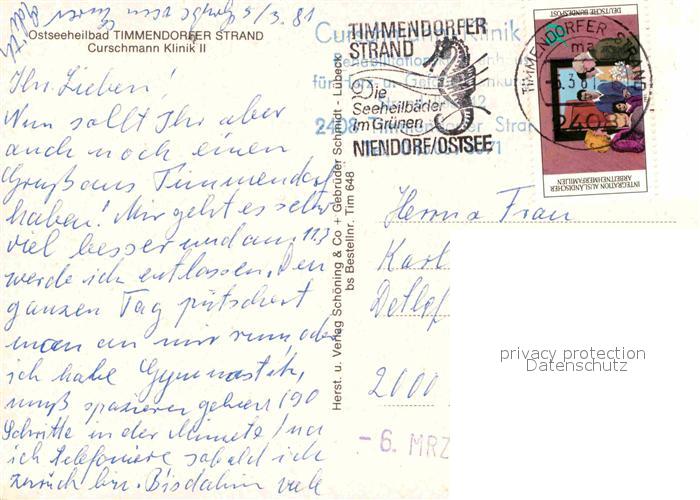 5/3. 81
Ostseeheilbad TIMMENDORFER STRAND
Curschmann Klinik II
Ihr Lieben!
Nun sollt Ihr aber
auch noch einen
Gruß aus Timmendorf
haben! Mir geht es sehr
viel besser und am 11.3
werde ich entlassen. Den
ganzen Tag
man an mir rum, oder
ich habe Gymnastik,
muß spazieren gehen (90
Schritte in der Minute!
ich telefoniere sobald ich
zurück bin. Bis dahin viele
Herst. u. Verlag Schöning & Co + Gebrüder Schmidt - Lübeck
bs Bestellnr. Tim 648
TIMMENDORFER
STRAND
Die
Seeheilbäder
im Grünen
NIENDORF/OSTSEE
TIMMENDORFER STRAND
ma
2408
DEUTSCHE BUNDESPOST
INTEGRATION AUSLÄNDISCHER
ARBEITNEHMERFAMILIEN
Herrn u Frau
Karl
Detlef
2000
- 6. MRZ
privacy protection
Datenschutz